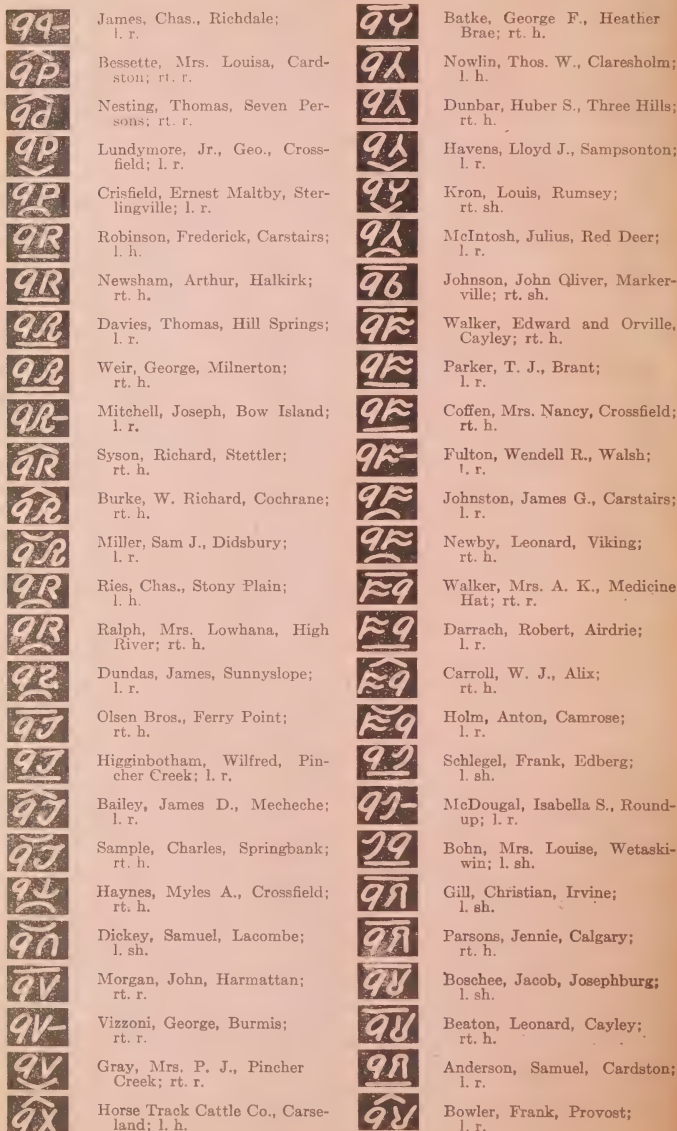 James, Chas., Richdale;
l. r.
Bessette, Mrs. Louisa, Card-
ston; rt. r.
Nesting, Thomas, Seven Per-
sons; rt. r.
Lundymore, Jr., Geo., Cross-
field; l. r.
Crisfield, Ernest Maltby, Ster-
lingville; l. r.
Robinson, Frederick, Carstairs;
l. h.
Newsham, Arthur, Halkirk;
rt. h.
Davies, Thomas, Hill Springs;
l. r.
Weir, George, Milnerton;
rt. h.
Mitchell, Joseph, Bow Island;
l. r.
Syson, Richard, Stettler;
rt. h.
Burke, W. Richard, Cochrane;
rt. h.
Miller, Sam J., Didsbury;
l. r.
Ries, Chas., Stony Plain;
l. h.
Ralph, Mrs. Lowhana, High
River; rt. h.
Dundas, James, Sunnyslope;
l. r.
Olsen Bros., Ferry Point;
rt. h.
Higginbotham, Wilfred, Pin-
cher Creek; l. r.
Bailey, James D., Mecheche;
l. r.
Sample, Charles, Springbank;
rt. h.
Haynes, Myles A., Crossfield;
rt. h.
Dickey, Samuel, Lacombe;
l. sh.
Morgan, John, Harmattan;
rt. r.
Vizzoni, George, Burmis;
rt. r.
Gray, Mrs. P. J., Pincher
Creek; rt. r.
Horse Track Cattle Co., Carse-
land; l. h.
Batke, George F., Heather
Brae; rt. h.
Nowlin, Thos. W., Claresholm;
l. h.
Dunbar, Huber S., Three Hills;
rt. h.
Havens, Lloyd J., Sampsonton;
l. r.
Kron, Louis, Rumsey;
rt. sh.
McIntosh, Julius, Red Deer;
l. r.
Johnson, John Oliver, Marker-
ville; rt. sh.
Walker, Edward and Orville,
Cayley; rt. h.
Parker, T. J., Brant;
l. r.
Coffen, Mrs. Nancy, Crossfield;
rt. h.
Fulton, Wendell R., Walsh;
l. r.
Johnston, James G., Carstairs;
l. r.
Newby, Leonard, Viking;
rt. h.
Walker, Mrs. A. K., Medicine
Hat; rt. r.
Darrach, Robert, Airdrie;
l. r.
Carroll, W. J., Alix;
rt. h.
Holm, Anton, Camrose;
l. r.
Schlegel, Frank, Edberg;
l. sh.
McDougal, Isabella S., Round-
up; l. r.
Bohn, Mrs. Louise, Wetaski-
win; l. sh.
Gill, Christian, Irvine;
l. sh.
Parsons, Jennie, Calgary;
rt. h.
Boschee, Jacob, Josephburg;
l. sh.
Beaton, Leonard, Cayley;
rt. h.
Anderson, Samuel, Cardston;
l. r.
Bowler, Frank, Provost;
l. r.